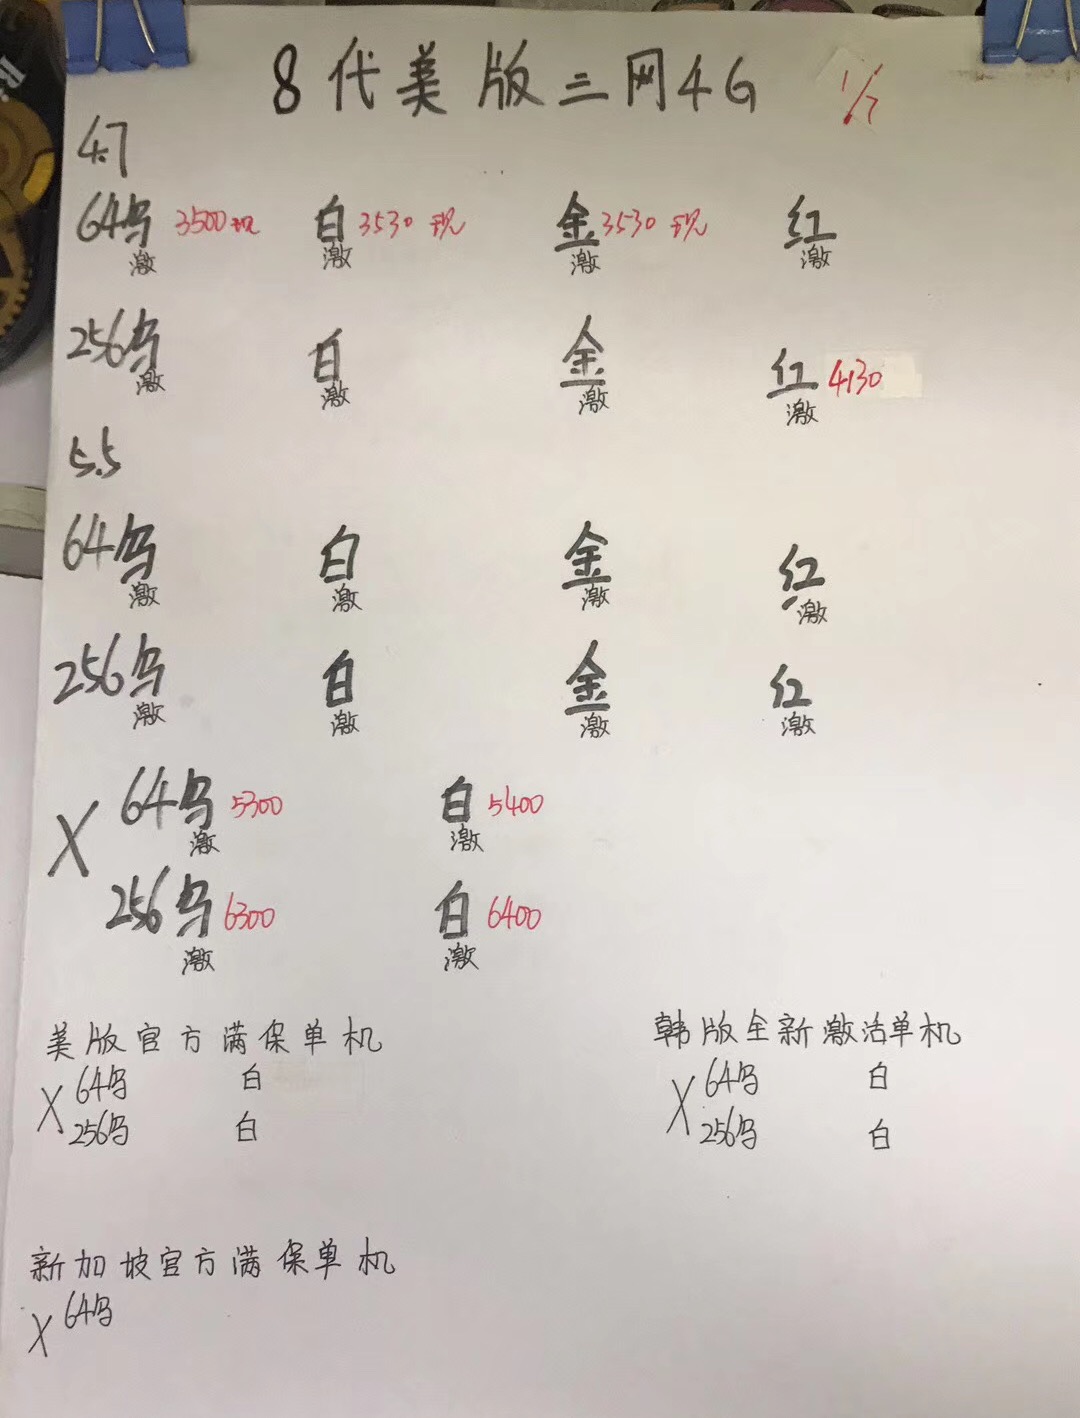 8代美版三网4G 1/7
4.7
64乌 3500现 白 3530 现 金 3530 现 红
激 激 激 激
256乌 白 金 红 4130
激 激 激 激
5.5
64乌 白 金 红
激 激 激 激
256乌 白 金 红
激 激 激 激
X 64乌 5300 白 5400
激 激
256乌 6300 白 6400
激 激
美版官方满保单机
X 64乌 白
256乌 白
韩版全新激活单机
X 64乌 白
256乌 白
新加坡官方满保单机
X 64乌